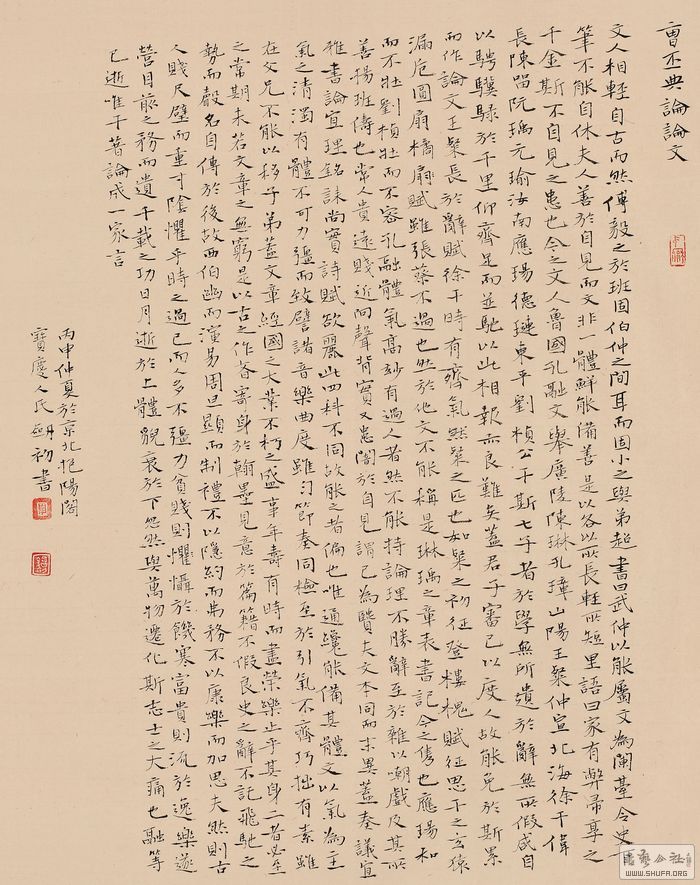 曹丕典論論文
文人相輕自古而然傅毅之於班固伯仲之間耳而固小之與弟超書曰武仲以能屬文為蘭臺令史下
筆不能自休夫人善於自見而文非一體鮮能備善是以各以所長輕所短里語曰家有弊帚享之
千金斯不自見之患也今之文人魯國孔融文舉廣陵陳琳孔璋山陽王粲仲宣北海徐干偉
長陳留阮瑀元瑜汝南應瑒德璉東平劉楨公干斯七子者於學無所遺於辭無所假咸自
以騁驥騄於千里仰齊足而並馳以此相報亦良難矣蓋君子審己以度人故能免於斯累
而作論文王粲長於辭賦徐干時有齊氣然粲之匹也如粲之初征登樓槐賦征思干之玄猿
漏卮圓扇橘扇賦雖張蔡不過也然於他文不能稱是琳瑀之章表書記今之雋也應瑒和
而不壯劉楨壯而不密孔融體氣高妙有過人者然不能持論理不勝辭至於雜以嘲戲及其所
善揚班儔也常人貴遠賤近向聲背實又患闇於自見謂己為賢夫文本同而末異蓋奏議宜
雅書論宜理銘誄尚實詩賦欲麗此四科不同故能之者偏也唯通纔能備其體文以氣為主
氣之清濁有體不可力彊而致譬諸音樂曲度雖勻節奏同檢至於引氣不齊巧拙有素雖
在父兄不能以移子弟蓋文章經國之大業不朽之盛事年壽有時而盡榮樂止乎其身二者必至
之常期未若文章之無窮是以古之作者寄身於翰墨見意於篇籍不假良史之辭不託飛馳之
勢而聲名自傳於後故西伯幽而演易周旦顯而制禮不以隱約而弗務不以康樂而加思夫然則古
人賤尺璧而重寸陰懼乎時之過已而人多不彊力貧賤則懼懾於饑寒富貴則流於逸樂遂
營目前之務而遺千載之功日月逝於上體貌衰於下忽然與萬物遷化斯志士之大痛也融等
已逝唯干著論成一家言
丙申仲夏於京北艳陽閣
寶慶人氏初書
WWW.SHUFA.ORG